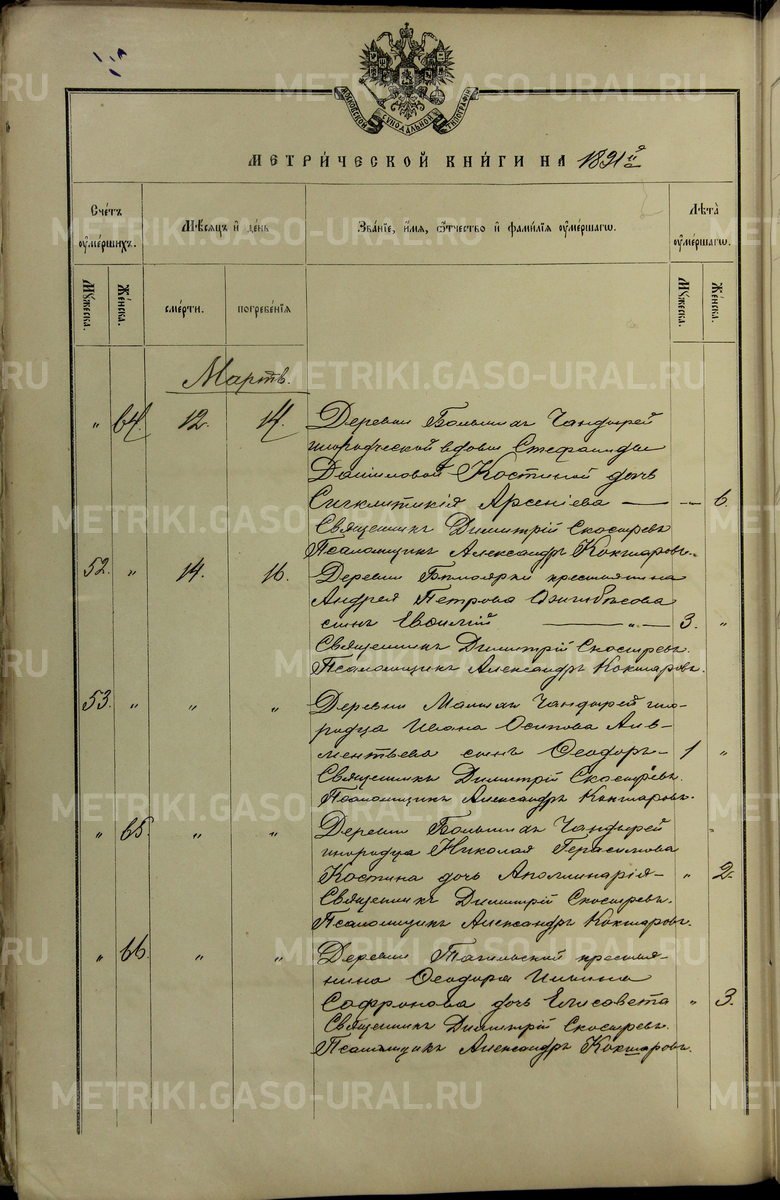 МОСКОВСКОЙ СѴНОДАЛЬНОЙ ТИПОГРАФІИ
МЕТРИ́ЧЕСКОЙ КНИ́ГИ НА 1891й
Сче́тъ ᲂу҆ме́ршихъ.
Мѣ́сяцъ и҆ де́нь
Зва́нїе, и҆́мя, ѻ҆́тчество и҆ фами́лїя ᲂу҆ме́ршагѡ.
Лѣ́та ᲂу҆ме́ршагѡ.
Мꙋ́жеска.
Же́нска.
сме́рти.
погребе́нїя
Мꙋ́жеска.
Же́нска.
Мартъ.
" 64. 12. 14. Деревни Большихъ Чандырей
инородческой вдовы Стефаниды
Даніиловой Костиной дочь
Сигклитикія Арсеніева — " 6.
Священникъ Димитрій Скосыревъ
Псаломщикъ Александръ Кокшаровъ.
52. " 14. 16. Деревни крестьянина
Андрея Петрова
сынъ Евѳимій — " — 3. "
Священникъ Димитрій Скосыревъ.
Псаломщикъ Александръ Кокшаровъ.
53. " " " Деревни Малыхъ Чандырей ино-
родца Ивана Осипова Али-
ментьева сынъ Ѳеодоръ — 1 "
Священникъ Димитрій Скосыревъ.
Псаломщикъ Александръ Кокшаровъ.
" 65. " " Деревни Большихъ Чандырей
инородца Николая Герасимова
Костина дочь Аполлинарія — " 2.
Священникъ Димитрій Скосыревъ.
Псаломщикъ Александръ Кокшаровъ.
" 66. " " Деревни Тагильской крестья-
нина Ѳеодора Ильина
Софронова дочь Елисавета " 3.
Священникъ Димитрій Скосыревъ.
Псаломщикъ Александръ Кокшаровъ.
METRIKI.GASO-URAL.RU